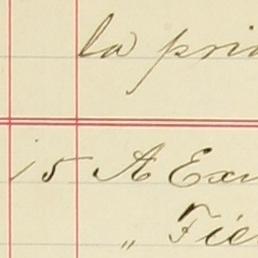 la pri
15 A Exm
" Fie